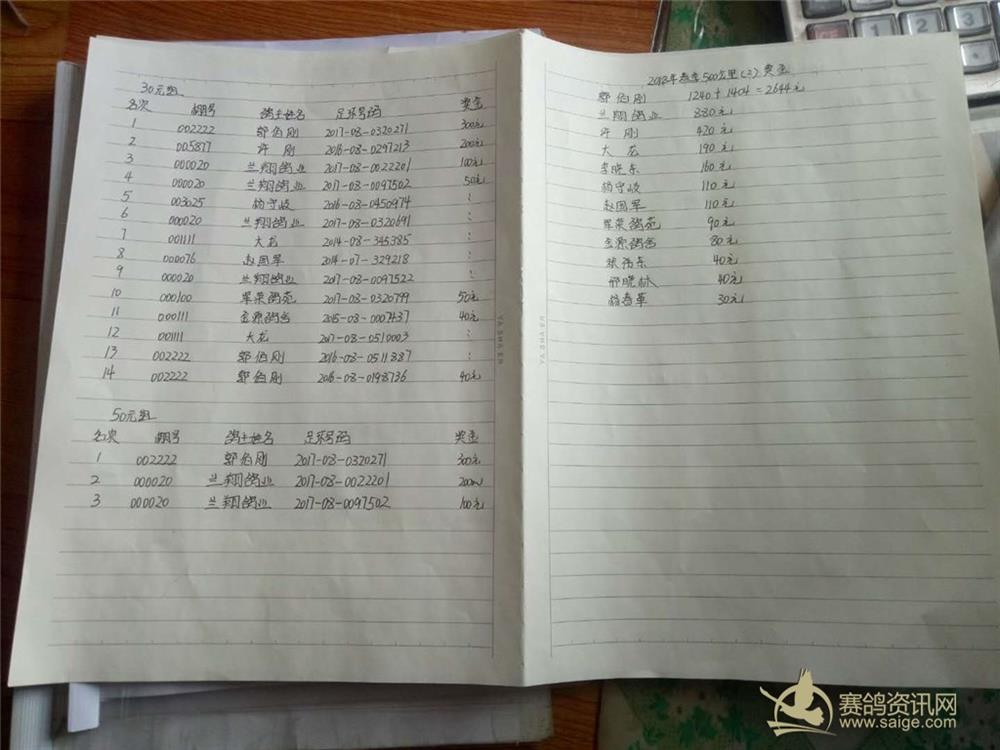 30元组
名次 棚号 鸽主姓名 足环号码 奖金
1 002222 郭伯刚 2017-08-0320271 300元
2 005877 许刚 2016-08-0297213 200元
3 000020 兰翔鸽业 2017-08-0022201 100元
4 000020 兰翔鸽业 2017-08-0097502 50元
5 003025 杨守岐 2016-08-0450974 :
6 000020 兰翔鸽业 2017-08-0320691 :
7 001111 大龙 2014-08-345385 :
8 000076 赵国军 2014-07-329218 :
9 000020 兰翔鸽业 2017-08-0097522 :
10 000100 军荣鸽苑 2017-08-0320799 50元
11 000111 金源鸽舍 2015-08-0007437 40元
12 001111 大龙 2017-08-0510003 :
13 002222 郭伯刚 2016-08-0511887 :
14 002222 郭伯刚 2016-08-0198736 40元
50元组
名次 棚号 鸽主姓名 足环号码 奖金
1 002222 郭伯刚 2017-08-0320271 300元
2 000020 兰翔鸽业 2017-08-0022201 200元
3 000020 兰翔鸽业 2017-08-0097502 100元
2018年春季500公里(二)奖金
郭伯刚 1240+1404=2644元
兰翔鸽业 880元
许刚 420元
大龙 190元
李晓东 160元
杨守岐 110元
赵国军 110元
军荣鸽苑 90元
金源鸽舍 80元
张伟东 40元
邢晓林 40元
30元
YA SHA ER
YA SHA ER
1 2 3
赛鸽资讯网
www.saige.com